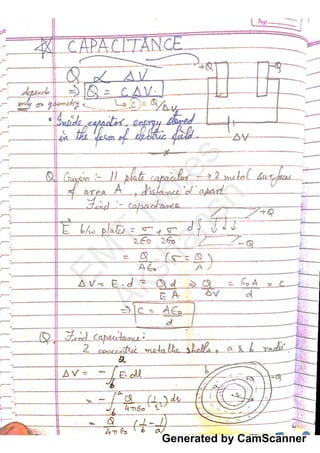 * CAPACITANCE
Q ∝ ΔV
depends only on geometry.
⇒ Q = CΔV.
→ C = Q/ΔV
+Q -Q
ΔV
• Inside capacitor, energy stored
in the form of electric field.
Q. Given :- 11 plate capacitor → 2 metal surfaces
of area A , distance 'd' apart
Find :- capacitance
+Q
E b/w plates = σ/2ε0 + σ/2ε0 d
-Q
= Q/Aε0 (σ = Q/A)
ΔV = E.d = Qd/ε A ⇒ Q/ΔV = ε0A/d = C
⇒ C = Aε0/d
Q. Find capacitance:
2 concentric metallic shells, a & b radii.
ΔV = - ∫ E.dl
= - ∫ Q/4πε0 (1/r²) dr
= Q/4πε0 (1/b - 1/a)
b
Generated by CamScanner